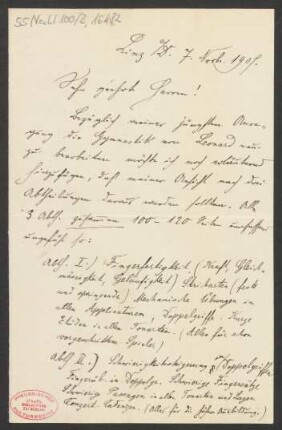 55 Nachl 100/B,
Linz a/D. 7. Nov. 1905.
Sehr geehrte Herren!
Bezüglich meiner jüngsten Anre-
gung die Gymnastik von Léonard neu
zu bearbeiten möchte ich noch
hinzufügen, daß meiner Ansicht nach drei
Abtheilungen daraus werden sollten. Alle
3 Abth. zusammen 100–120 Seiten
ungefähr so:
Abth. I.) Fingerfertigkeit (Kraft, Gleich-
mässigkeit, Geläufigkeit) Stricharten (fest
und springende) Mechanische Übungen in
allen Applicaturen, Doppelgriffe. Kurze
Etüden in allen Tonarten. (Alles für schon
vorgeschrittene Spieler)
Abth. II.) Doppelgriffe
in Doppelgr. Schwierige Fingersätze
Schwierige Passagen in allen Tonarten und Lagen
Konzert Cadenzen. (Alles für die höhere Ausbildung.)